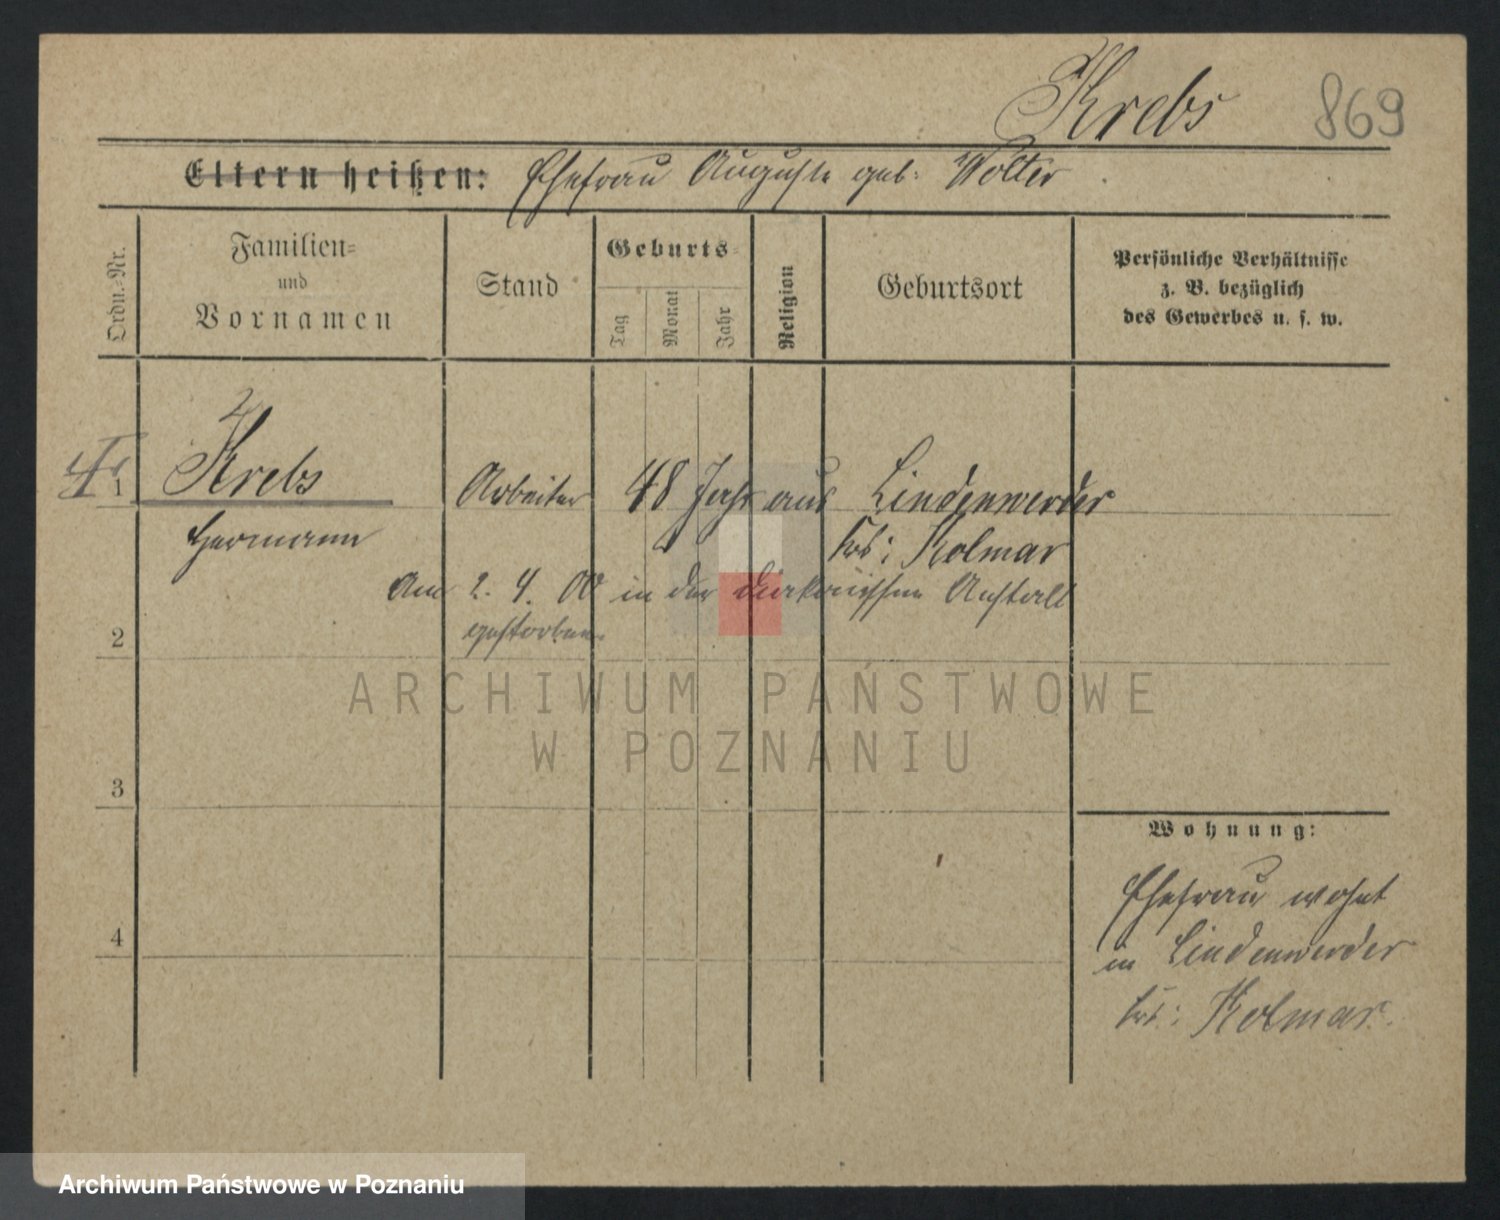 Krebs 869
Eltern heißen: Ehefrau Auguste geb: Wolter
Ordn.-Nr.
Familien-
und
Vornamen
Stand
Geburts-
Tag
Monat
Jahr
Religion
Geburtsort
Persönliche Verhältnisse
z. B. bezüglich
des Gewerbes u. s. w.
1 Krebs Arbeiter 48 Jahr aus Lindenwerder
Hermann Krs: Kolmar
Am 2. 4. 00 in der Anstalt
gestorben
2
ARCHIWUM PAŃSTWOWE
W POZNANIU
3
Wohnung:
Ehefrau wohnt
4
in Lindenwerder
Krs: Kolmar.
Archiwum Państwowe w Poznaniu